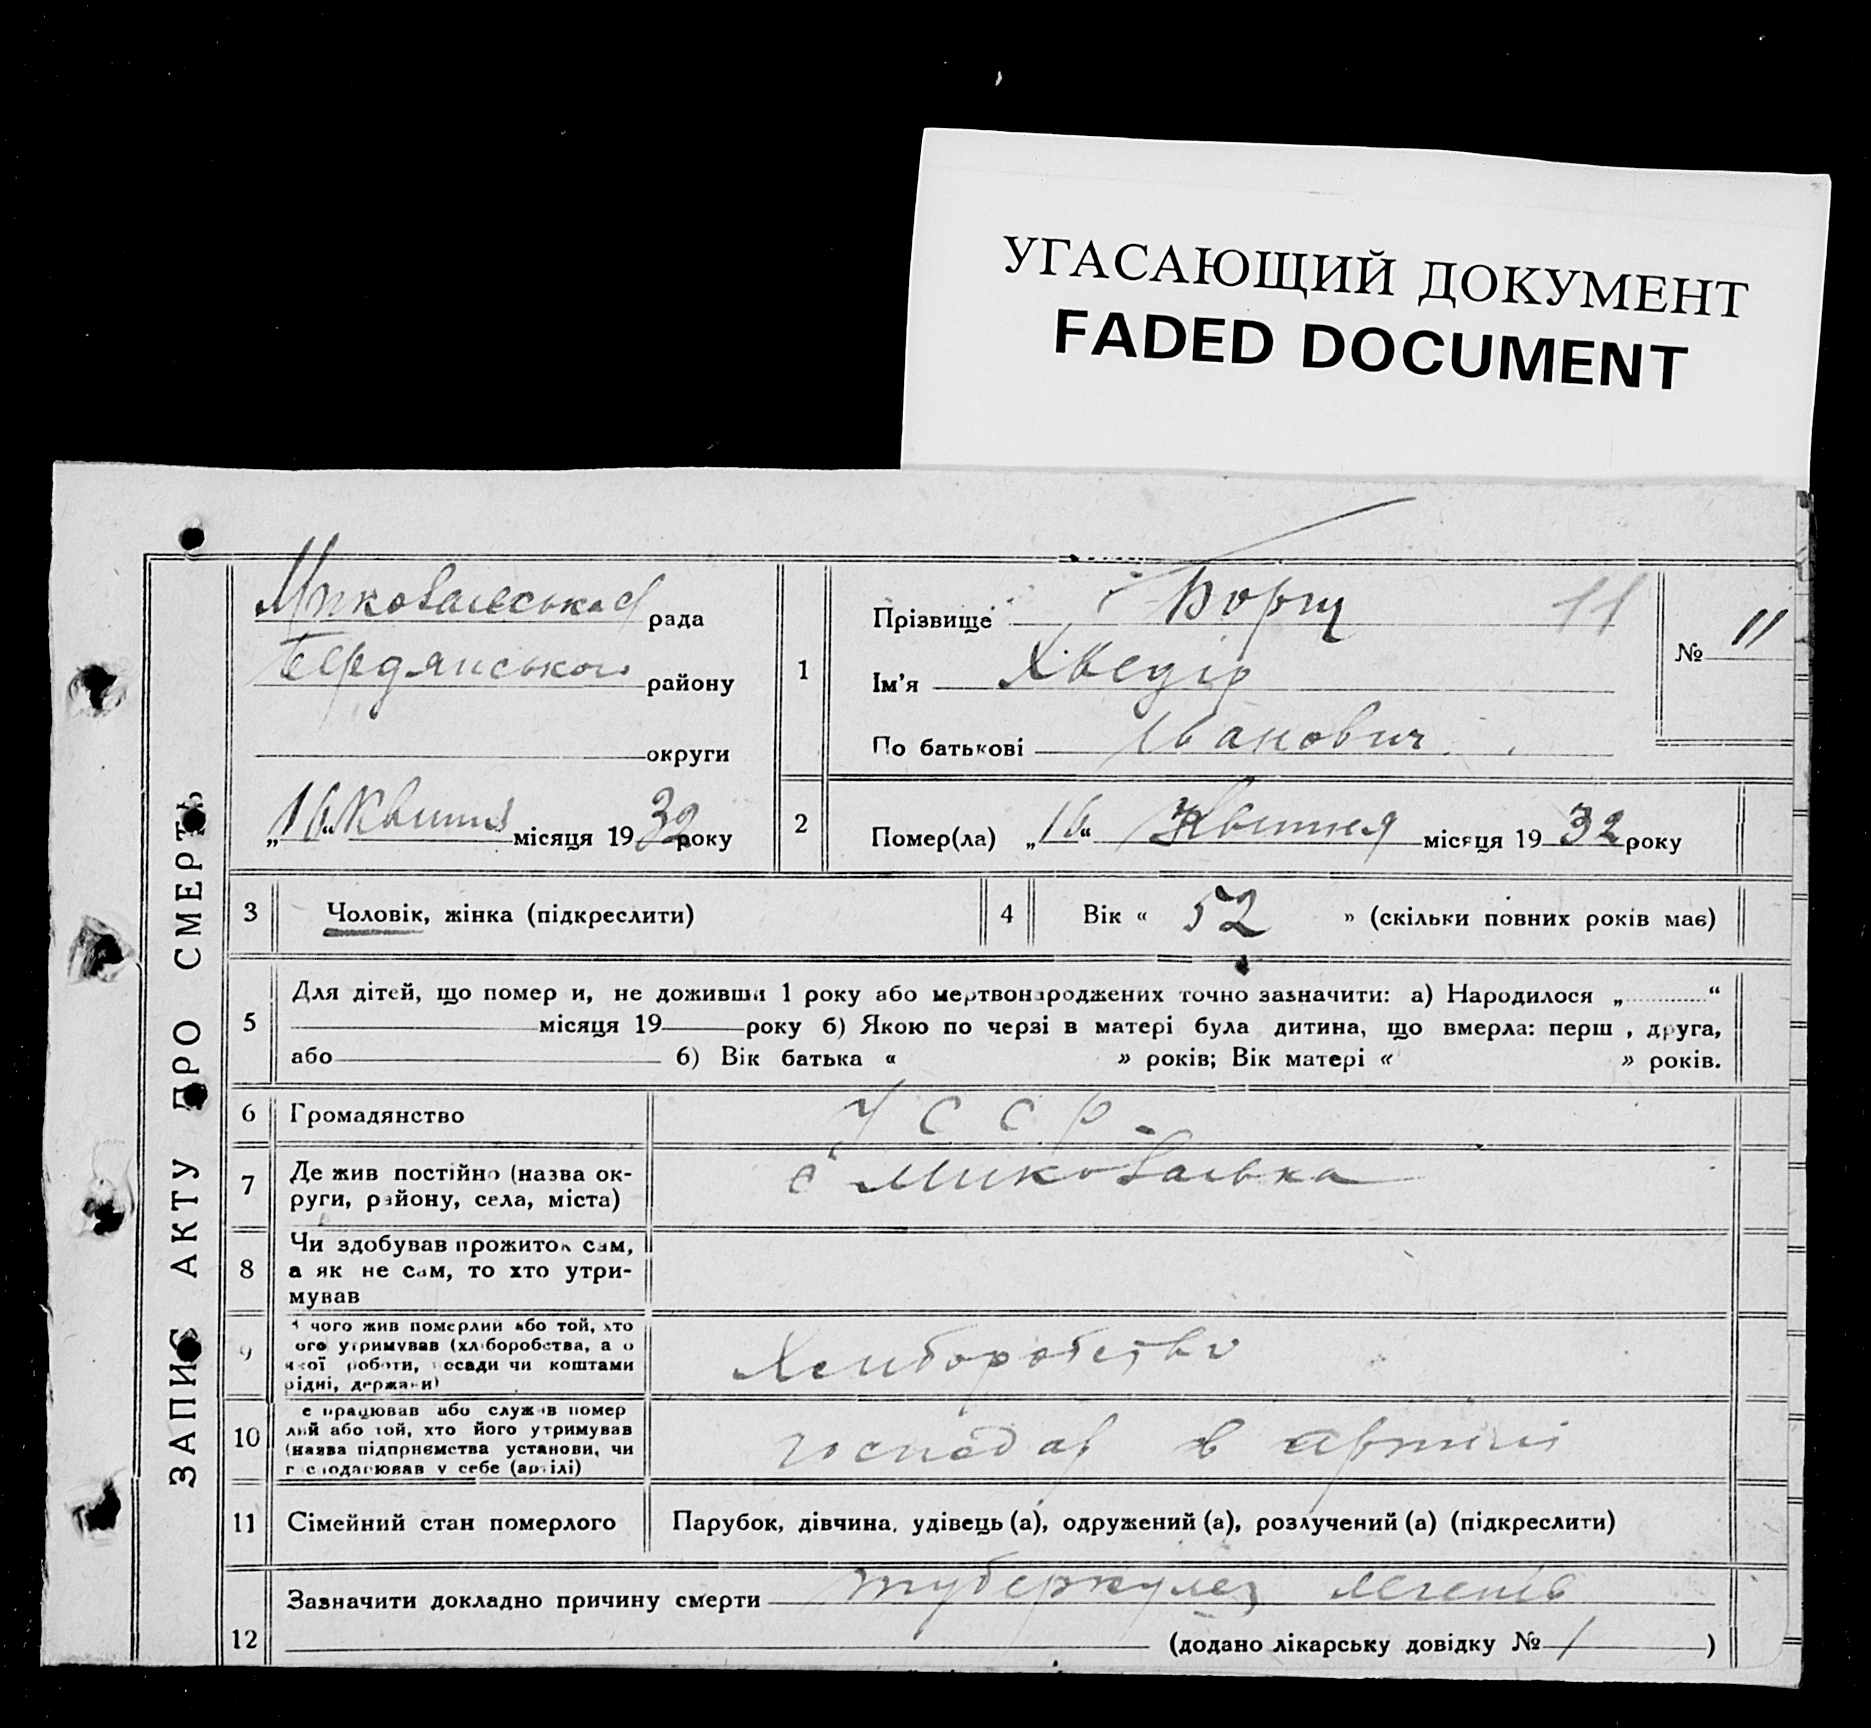 УГАСАЮЩИЙ ДОКУМЕНТ
FADED DOCUMENT
ЗАПИС АКТУ ПРО СМЕРТЬ
Миковалеська рада
Бердянського району
округи
„16“ Квітня місяця 1932 року
1
Прізвище Борщ 11
Ім'я Хведір
По батькові Іванович
№ 11
2 Помер(ла) „16“ Квітня місяця 1932 року
3 Чоловік, жінка (підкреслити)
4 Вік « 52 » (скільки повних років має)
5 Для дітей, що помер и, не доживши 1 року або мертвонароджених точно зазначити: а) Народилося „ “
місяця 19 року б) Якою по черзі в матері була дитина, що вмерла: перш , друга,
або б) Вік батька « » років; Вік матері « » років.
6 Громадянство УССР
7 Де жив постійно (назва ок-
руги, району, села, міста) с Миковалька
8 Чи здобував прожиток сам,
а як не сам, то хто утри-
мував
9 чого жив померлий або той, хто
ого утримував (хліборобства, а о
якої роботи, посади чи коштами
рідні, держави)
Хлиборобство
10 е працював або служив помер
лий або той, хто його утримував
(назва підприємства установи, чи
г сподарював у себе (артілі)
господар в артилі
11 Сімейний стан померлого Парубок, дівчина, удівець (а), одружений (а), розлучений (а) (підкреслити)
12 Зазначити докладно причину смерти туберкулез легенів
(додано лікарську довідку № 1 )